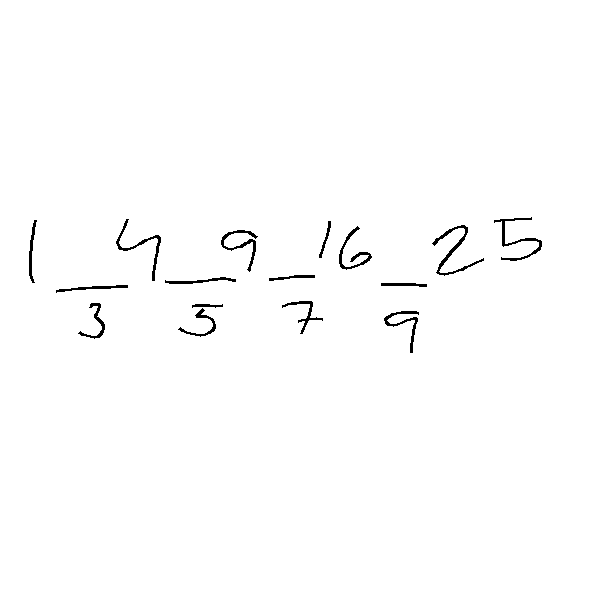 1 4 9 16 25
3 5 7 9